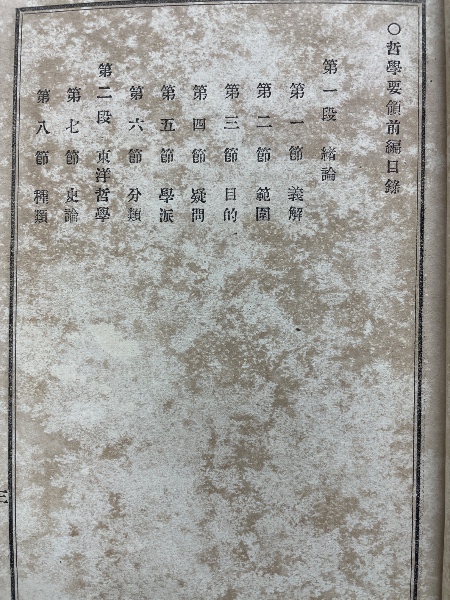 〇哲學要領前編目錄
第一段 緖論
第一節 義解
第二節 範圍
第三節 目的
第四節 疑問
第五節 學派
第六節 分類
第二段 東洋哲學
第七節 史論
第八節 種類
三